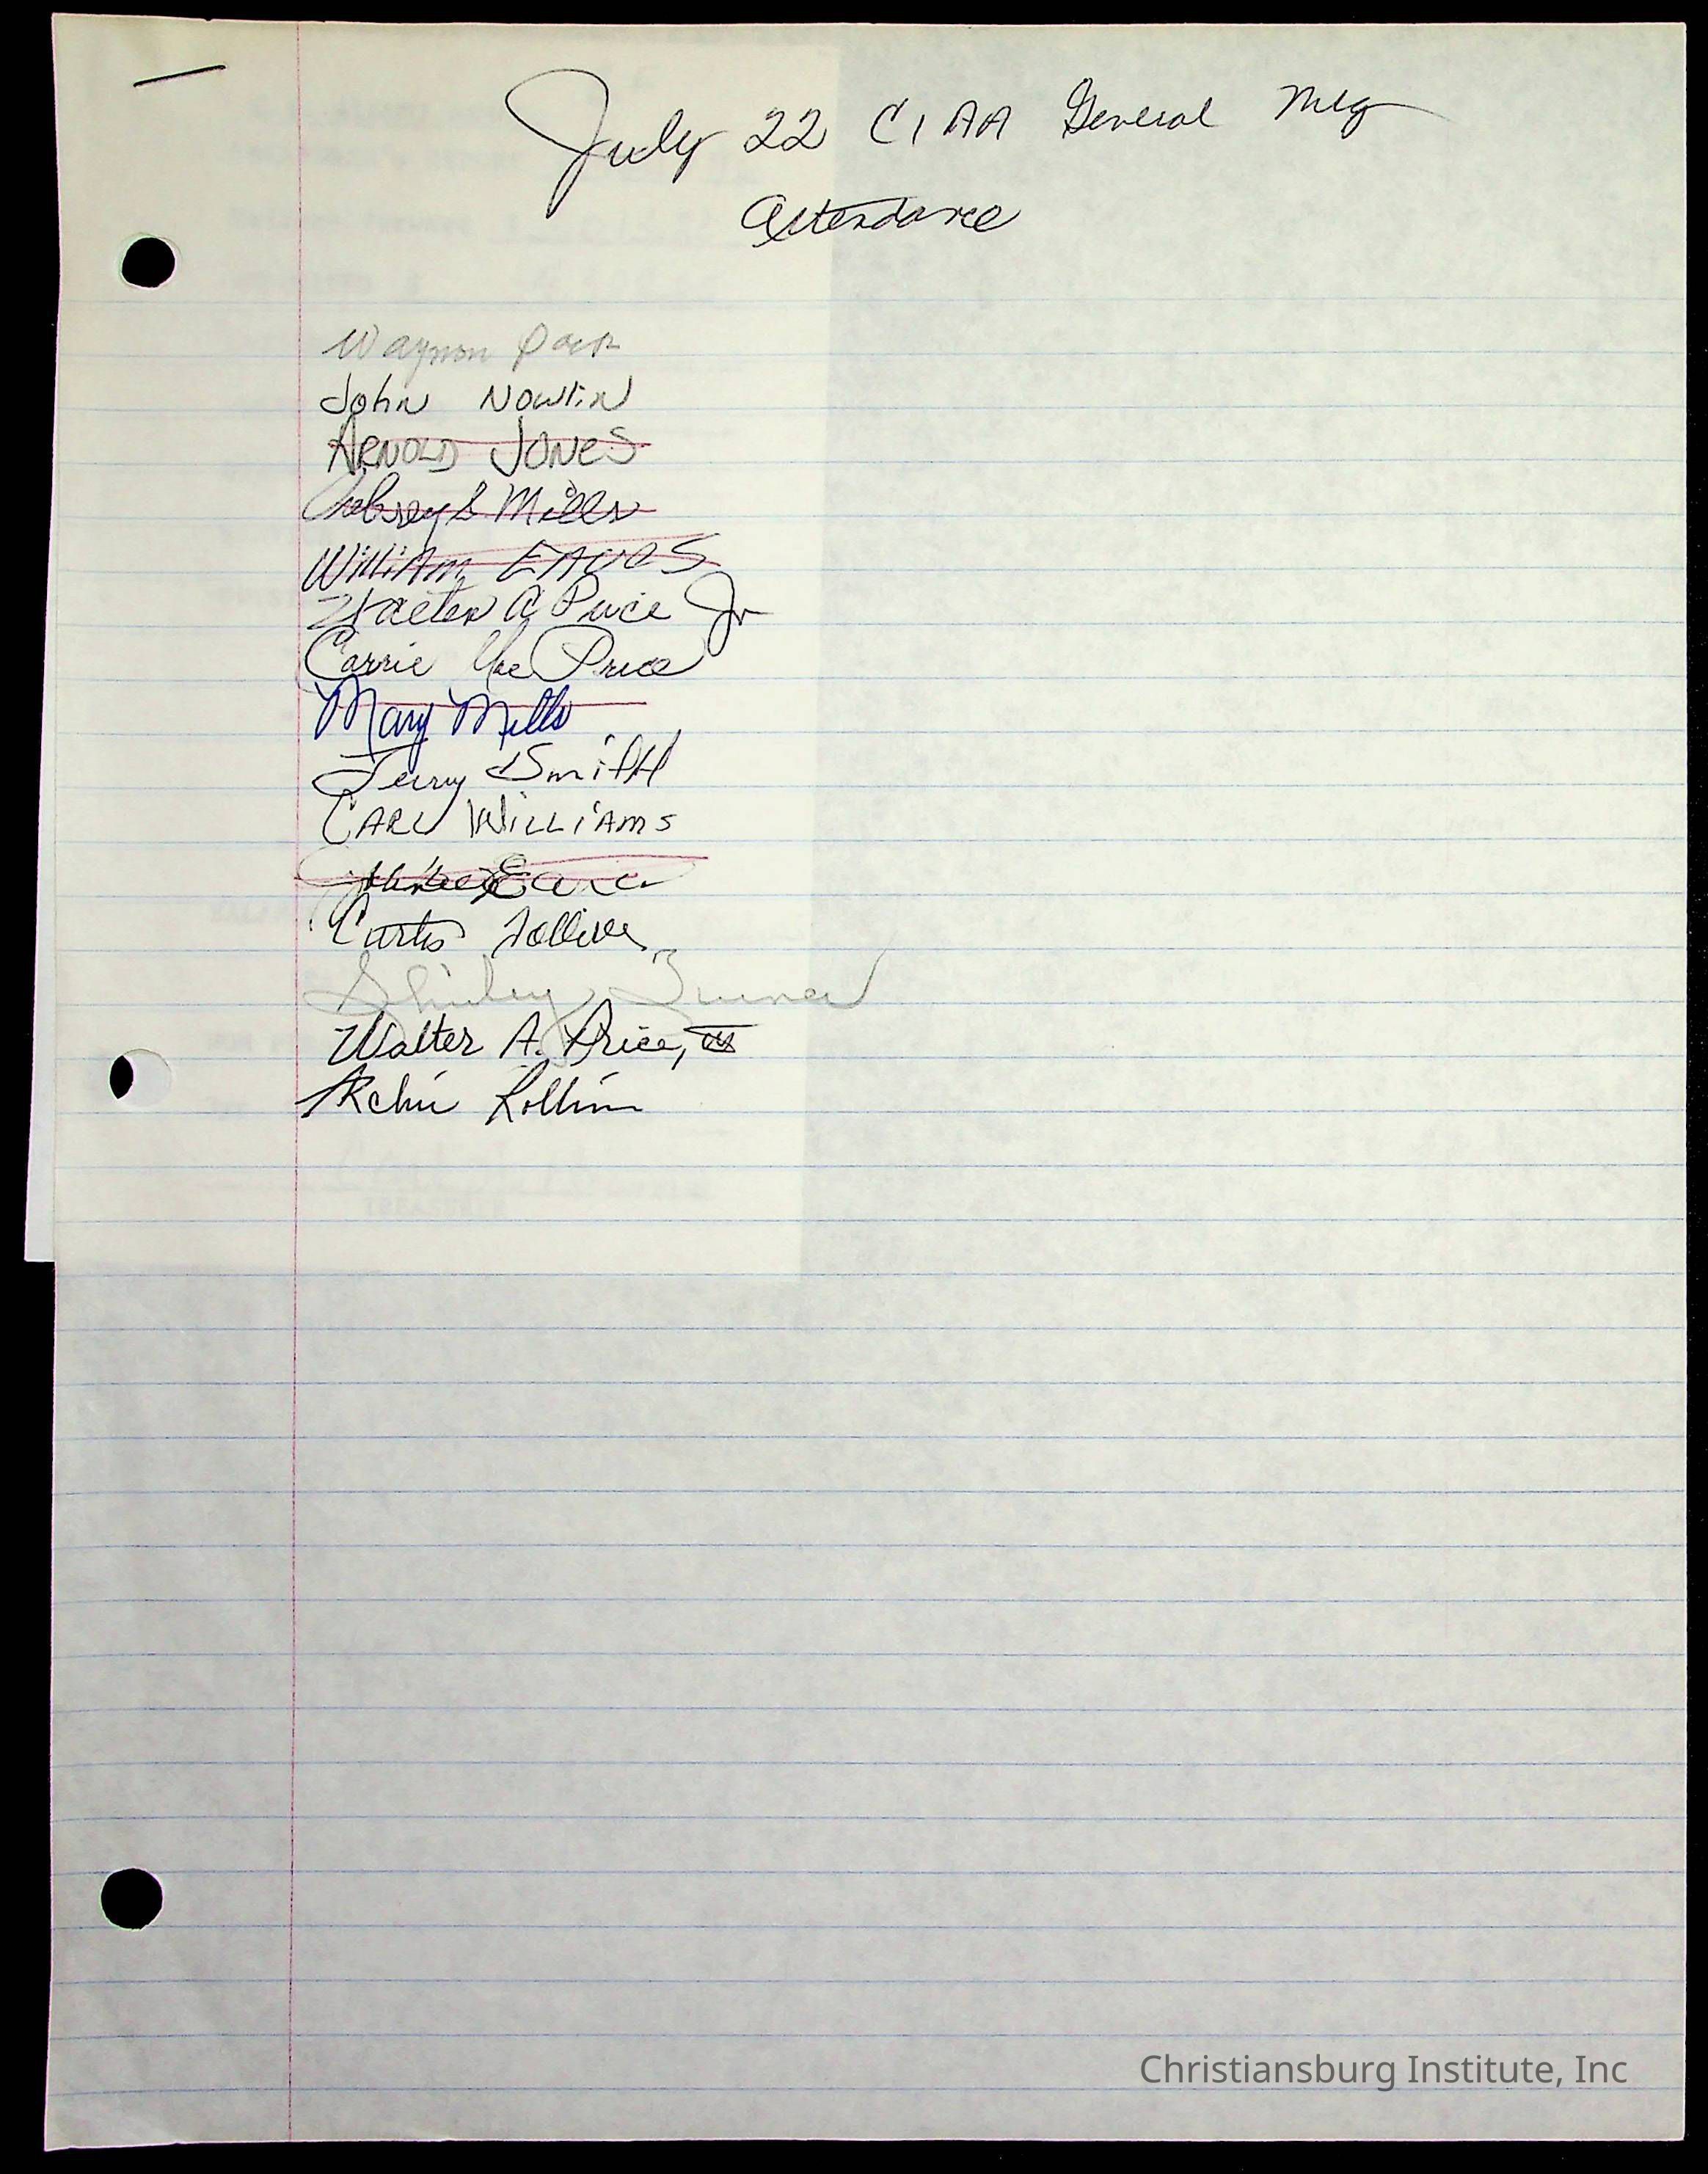 July 22 CIAA General Mtg
Attendance
Waymon
John Nowlin
ARNOLD JONES
Aubrey S Mills
William EAVES
Walter A Price Jr
Carrie Mae Price
Mary Mills
Jerry Smith
CARL WILLIAMS
Curtis Tolliver
Shirley
Walter A. Price, III
Archie Rollins
Christiansburg Institute, Inc